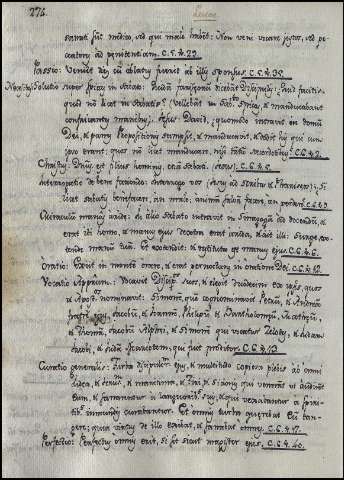 276. Lucas
sanati sunt medico, sed qui male habent: Non veni vocare justos, sed pec-
catores ad penitentiam. C. 5. #. 32.
Passio: Venient dies, cum ablatus fuerit ab illis sponsus. C. 5. #. 35.
super spicas in Sabato: Quidam farisaeorum dicebat Discipulis: Quid facitis,
quod non licet in Sabatis? (vellebant in Sabato spicas, et manducabant
confricantes manibus). Jesus: David, quomodo intravit in domum
Dei, et panes Propositionis sumpsit, et manducavit, et dedit his qui cum
ipso erant: quos non licet manducare, nisi tantum sacerdotibus. C. 6. #. 2.
Christus: Dominus est filius hominis, etiam Sabati. C. 6. #. 5.
de bene faciendo: Interrogo vos si
licet sabatis benefacere, an male; animam salvam facere, an perdere. #. 9.
manus aridae: die alio Sabato intravit in Sinagogam ad docendum, et
erat ibi homo, et manus ejus dextera erat arida, et ait illi: Surge, ex-
tende manum tuam. Et extendit: et restituta est manus ejus. C. 6. #. 6.
Oratio: Exivit in montem orare, et erat pernoctans in oratione Dei. C. 6. #. 12.
Vocatio Apostolorum: Vocavit Discipulos suos, et elegit duodecim ex ipsis, quos
et Apostolos nominavit: Simonem, quem cognominavit Petrum, et Andream
fratrem ejus, Jacobum, et Joannem, Philippum, et Bartholomeum, Matheum,
et Thomam, Jacobum Alphaei, et Simonem qui vocatur Zelotes, et Judam
Jacobi, et Judam Iscariotem, qui fuit proditor. C. 6. #. 13.
Curatio generalis: Turba discipulorum ejus, et multitudo copiosa plebis ab omni
Judea, et Jerusalem, et maritima, et Tiri, et Sidonis, qui venerant ut audirent
Eum, et sanarentur a languoribus suis, et qui vexabantur a spiriti-
bus immundis curabantur. Et omnis turba querebat Eum tan-
gere; quia virtus de illo exibat, et sanabat omnes. C. 6. #. 17.
Perfectio: Perfectus omnis erit, si sit sicut magister ejus. C. 6. #. 40.